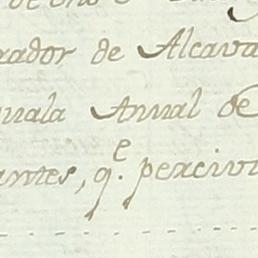 rador de Alcava
Anual de
antes, q.e percivi